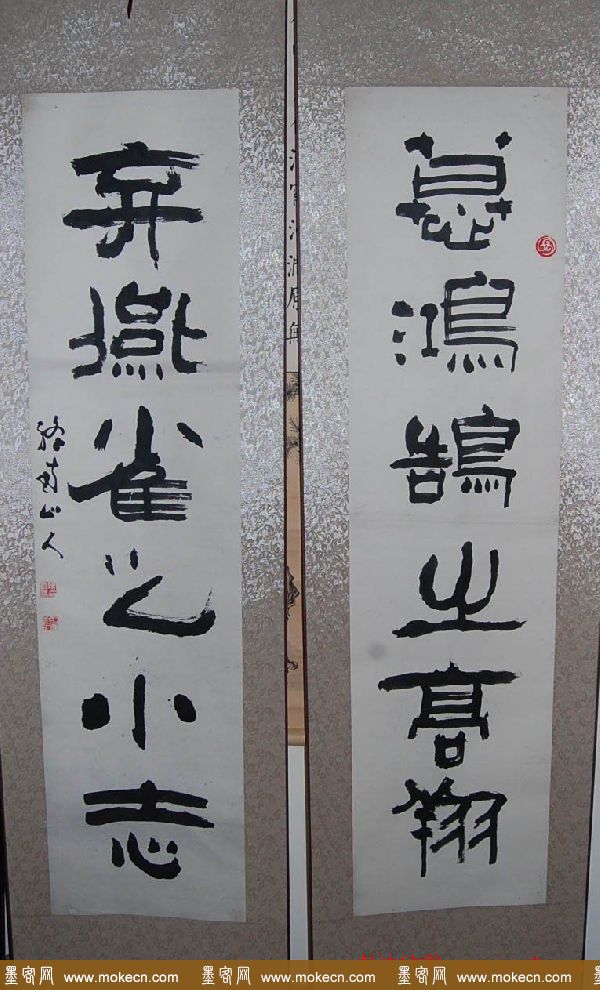 慕鴻鵠之高翔
弃燕雀之小志
山人
墨客网 www.mokecn.com 墨客网 www.mokecn.com 墨客网 www.mokecn.com